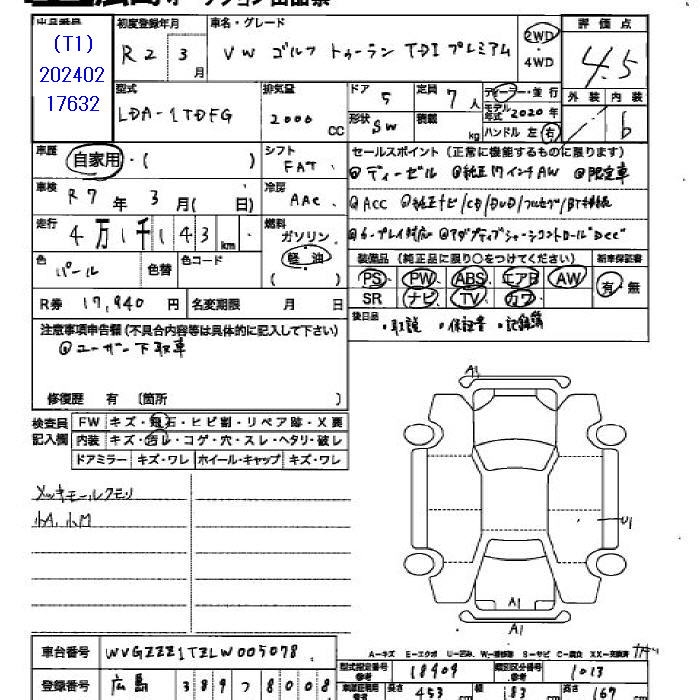 出品番号 初度登録年月 車名・グレード 評価点
(T1)
202402
17632
R2 3月 VW ゴルフ トゥーラン TDI プレミアム 2WD・4WD 4.5
型式 排気量 ドア 5 定員 7人 ディーラー・並行 外装 内装
LDA-1TDFG 2000 CC 形状 SW 積載 kg モデル年式 2020年 ハンドル 左 右 B
車歴 自家用・( ) シフト FAT セールスポイント(正常に機能するものに限ります)
ディーゼル 純正17インチAW 限定車
車検 R7年 3月( 日) 冷房 AAC
ACC 純正ナビ/CD/DVD/フルセグ/BT接続
走行 4万1千143km 燃料 ガソリン 軽油 ( )
アダプティブシャーシコントロール"DCC"
色 パール 色替 色コード 装備品(純正品に限り○をつけてください) 新車保証書
PS PW ABS エアB AW 有・無
SR ナビ TV カワ
R券 17,940円 名変期限 月 日
後日品 ・取説 ・保証書 ・記録簿
注意事項申告欄(不具合内容等は具体的に記入して下さい)
ユーザー下取車
修復歴 有 〔箇所 〕
検査員記入欄 FW キズ・飛石・ヒビ割・リペア跡・X要
内装 キズ・汚レ・コゲ・穴・スレ・ヘタリ・破レ
ドアミラー キズ・ワレ ホイール・キャップ キズ・ワレ
A1
メッキモールクモリ
小A、小M
U1
A1
A1
車台番号 WVGZZZ1TZLW005078
A-キズ E-エクボ U-凹み W-補修跡 S-サビ C-腐食 XX-交換済
型式指定番号 参考 18409 類別区分番号 参考 1013
登録番号 広島 389 フ 8008 長さ 453 cm 幅 183 cm 高さ 167